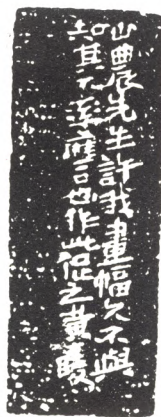 山農先生許我畫幅久不與
知其不深應也作此促之黃陵